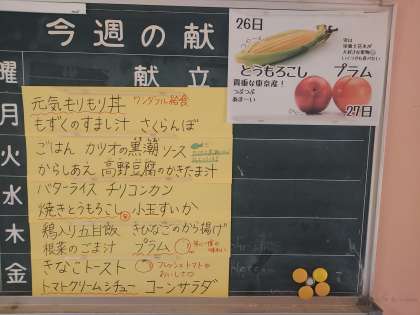 今週の献
献立
26日
とうもろこし
貴重な東京産！
つぶつぶ
あまーい
プラム
27日
月
元気もりもり丼 ワンダフル給食
もずくのすまし汁 さくらんぼ
火
ごはん カツオの黒潮ソース
からしあえ 高野豆腐のかきたま汁
水
バターライス チリコンカン
焼きとうもろこし 小玉すいか
木
鶏入り五目飯 きびなごのから揚げ
根菜のごま汁 プラム
金
きなこトースト フレッシュトマトが
おいしさつ
トマトクリームシチュー コーンサラダ
曜